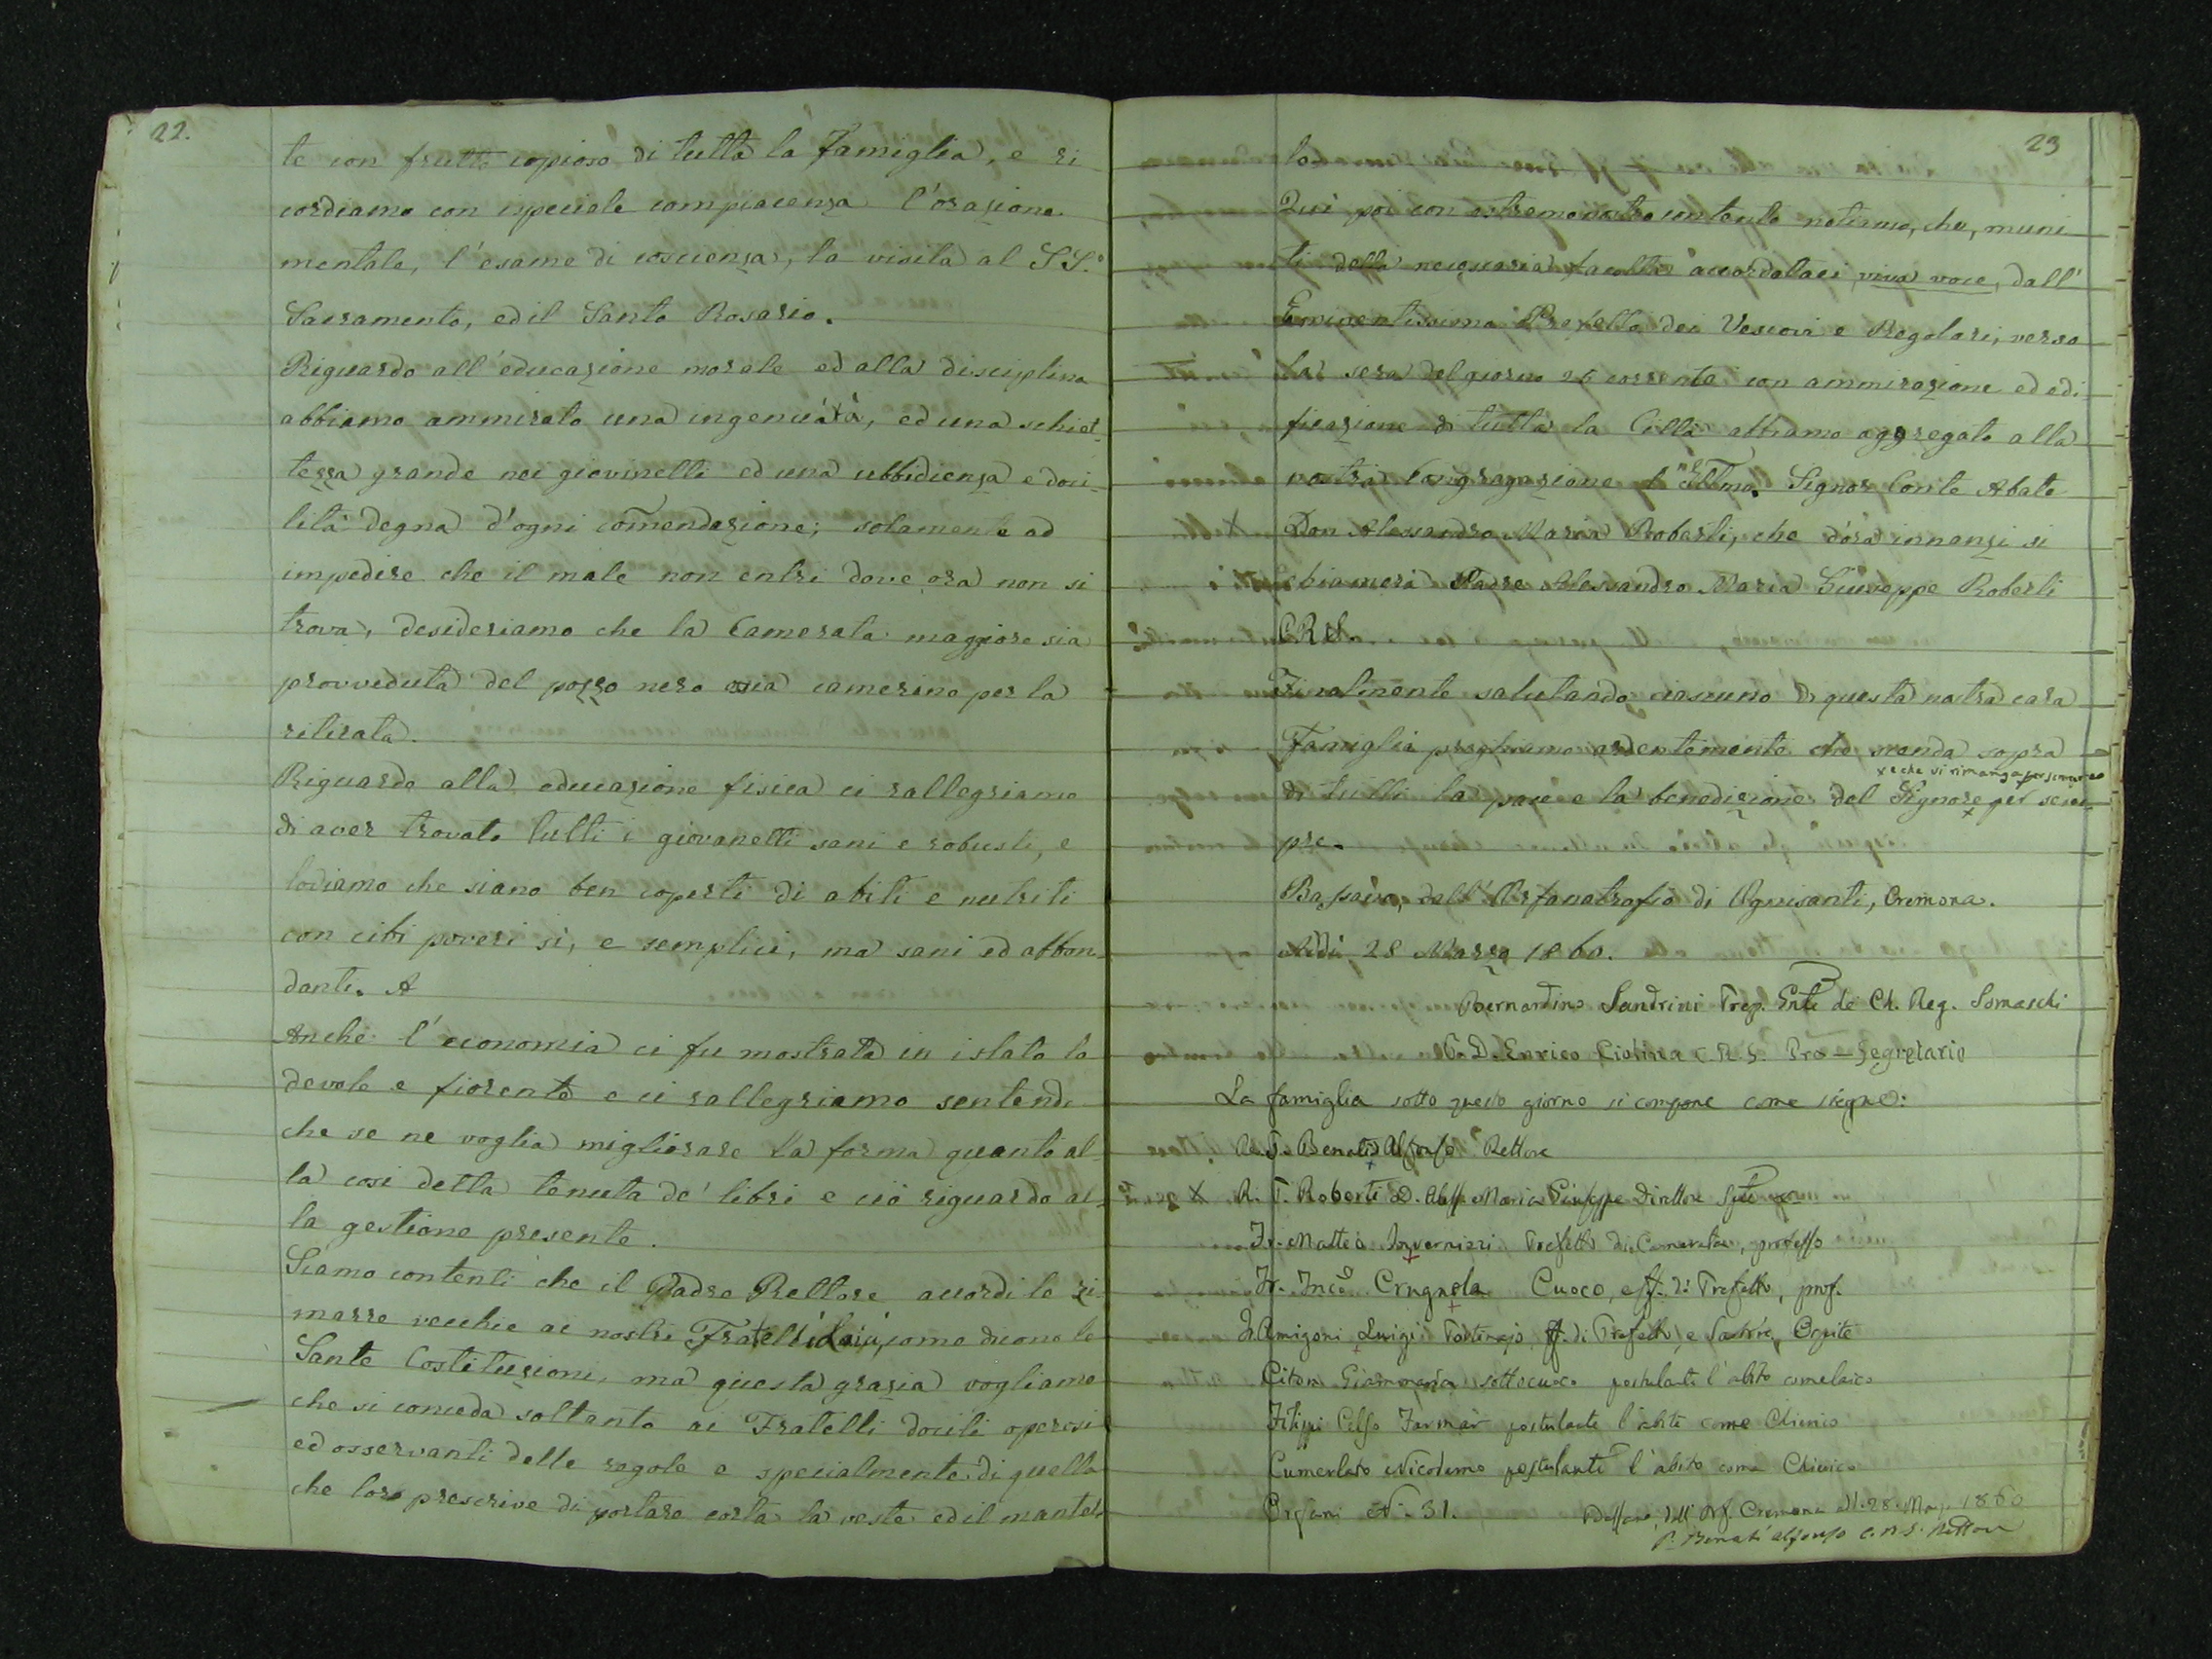 22.
te con frutto copioso di tutta la Famiglia, e ri
cordiamo con ispeciale compiacenza l'orazione
mentale, l'esame di coscienza, la visita al SS.°
Sacramento, ed il Santo Rosario.
Riguardo all'educazione morale ed alla disciplina
abbiamo ammirato una ingenuità, ed una schiet-
tezza grande nei giovinelli ed una ubbidienza e doci-
lità degna d'ogni comendazione; solamente ad
impedire che il male non entri dove ora non si
trova, desideriamo che la Camerata maggiore sia
provveduta del pozzo nero ossia camerino per la
ritirata.
Riguardo alla educazione fisica ci rallegriamo
di aver trovato tutti i giovanetti sani e robusti, e
lodiamo che siano ben coperti di abiti e nutriti
con cibi poveri sì, e semplici, ma sani ed abbon-
danti. A
Anche l'economia ci fu mostrata in istato lo
devole e fiorente e ci rallegriamo sentendo
che se ne voglia migliorare la forma quanto al-
la così detta tenuta de' libri e ciò riguardo al-
la gestione presente.
Siamo contenti che il Padre Rettore accordi le zi-
marre vecchie ai nostri Fratelli Laici, come dicono le
Sante Costituzioni, ma questa grazia vogliamo
che si conceda soltanto ai Fratelli docili operosi
ed osservanti delle regole e specialmente di quella
che loro prescrive di portare corta la veste ed il mantel-
23
lo.
Quì poi con estremo nostro contento notiamo, che, muni
ti della necessaria facoltà accordataci viva voce, dall'
Eminentissimo Prefetto dei Vescovi e Regolari, verso
la sera del giorno 25 corrente con ammirazione ed edi-
ficazione di tutta la Città abbiamo aggregato alla
nostra Congregazione l' Illmo. Signor Conte Abate
Don Alessandro Maria Roberti, che d'ora innanzi si
chiamerà Padre Alessandro Maria Giuseppe Roberti
CRS.
Finalmente salutando ciascuno di questa nostra cara
Famiglia preghiamo ardentemente che scenda sopra
x e che vi rimanga per sempre
di tutti la pace e la benedizione del Signore per sem-
pre.
Bassano, dall'Orfanotrofio di Ognisanti, Cremona.
Addì 28 Marzo 1860.
Bernardino Sandrini Prep. Gnle de Ch. Reg. Somaschi
P. D. Enrico Giolina C.R.S. Pro-Segretario
La famiglia sotto questo giorno si compone come siegue:
R. P. Benati Alfonso Rettore
R. P. Roberti D. Aless. Maria Giuseppe Direttore Spile
Fr. Matteo Invernizzi Prefetto di Camerata, professo
Fr. Inco Crugnola Cuoco, eff. di Prefetto, prof.
Fr. Amigoni Luigi Portinajo, ff. di Prefetto, e Sartore, Ospite
Giammaria sottocuoco postulante l'abito come laico
Filippi Celso postulante l'abito come Chierico
Cumerlato Nicodemo postulante l'abito come Chierico
Orfani N. 31.
Bassano dall'Orf. Cremona il 28. Mar. 1860
P. Benati Alfonso C.R.S. Rettore